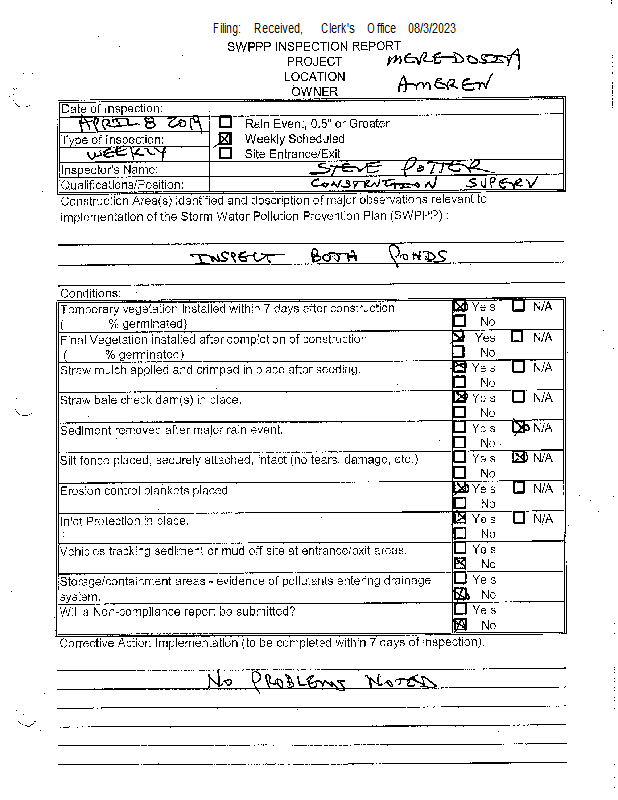 Filing: Received, Clerk's Office 08/3/2023
SWPPP INSPECTION REPORT
PROJECT MEREDOSIA
LOCATION
OWNER AMEREN
Date of Inspection:
APRIL 8 2019
Rain Event, 0.5" or Greater
Type of Inspection: ☒ Weekly Scheduled
WEEKLY ☐ Site Entrance/Exit
Inspector's Name: STEVE POTTER
Qualifications/Position: CONSTRUCTION SUPERV
Construction Area(s) identified and description of major observations relevant to
implementation of the Storm Water Pollution Prevention Plan (SWPPP) :
INSPECT BOTH PONDS
Conditions:
Temporary vegetation installed within 7 days after construction ☒ Yes ☐ N/A
( % germinated) ☐ No
Final Vegetation installed after completion of construction ☒ Yes ☐ N/A
( % germinated) ☐ No
Straw mulch applied and crimped in place after seeding. ☒ Yes ☐ N/A
☐ No
Straw bale check dam(s) in place. ☒ Yes ☐ N/A
☐ No
Sediment removed after major rain event. ☐ Yes ☒ N/A
☐ No
Silt fence placed, securely attached, intact (no tears, damage, etc.) ☐ Yes ☒ N/A
☐ No
Erosion control blankets placed ☒ Yes ☐ N/A
☐ No
Inlet Protection in place. ☒ Yes ☐ N/A
☐ No
Vehicles tracking sediment or mud off site at entrance/exit areas. ☐ Yes
☒ No
Storage/containment areas - evidence of pollutants entering drainage ☐ Yes
system. ☒ No
Will a Non-compliance report be submitted? ☐ Yes
☒ No
Corrective Action Implementation (to be completed within 7 days of inspection).
NO PROBLEMS NOTED